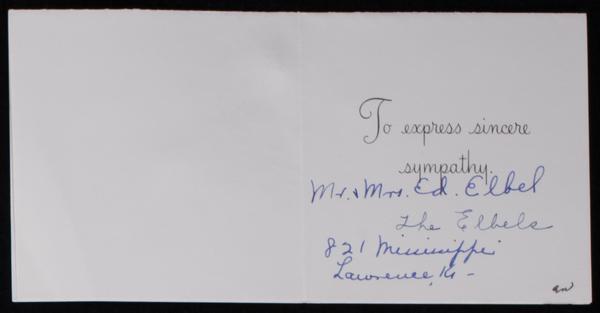 To express sincere
sympathy.
Mr. & Mrs. Ed. Elbel
The Elbels
821 Mississippi
Lawrence, Ks -